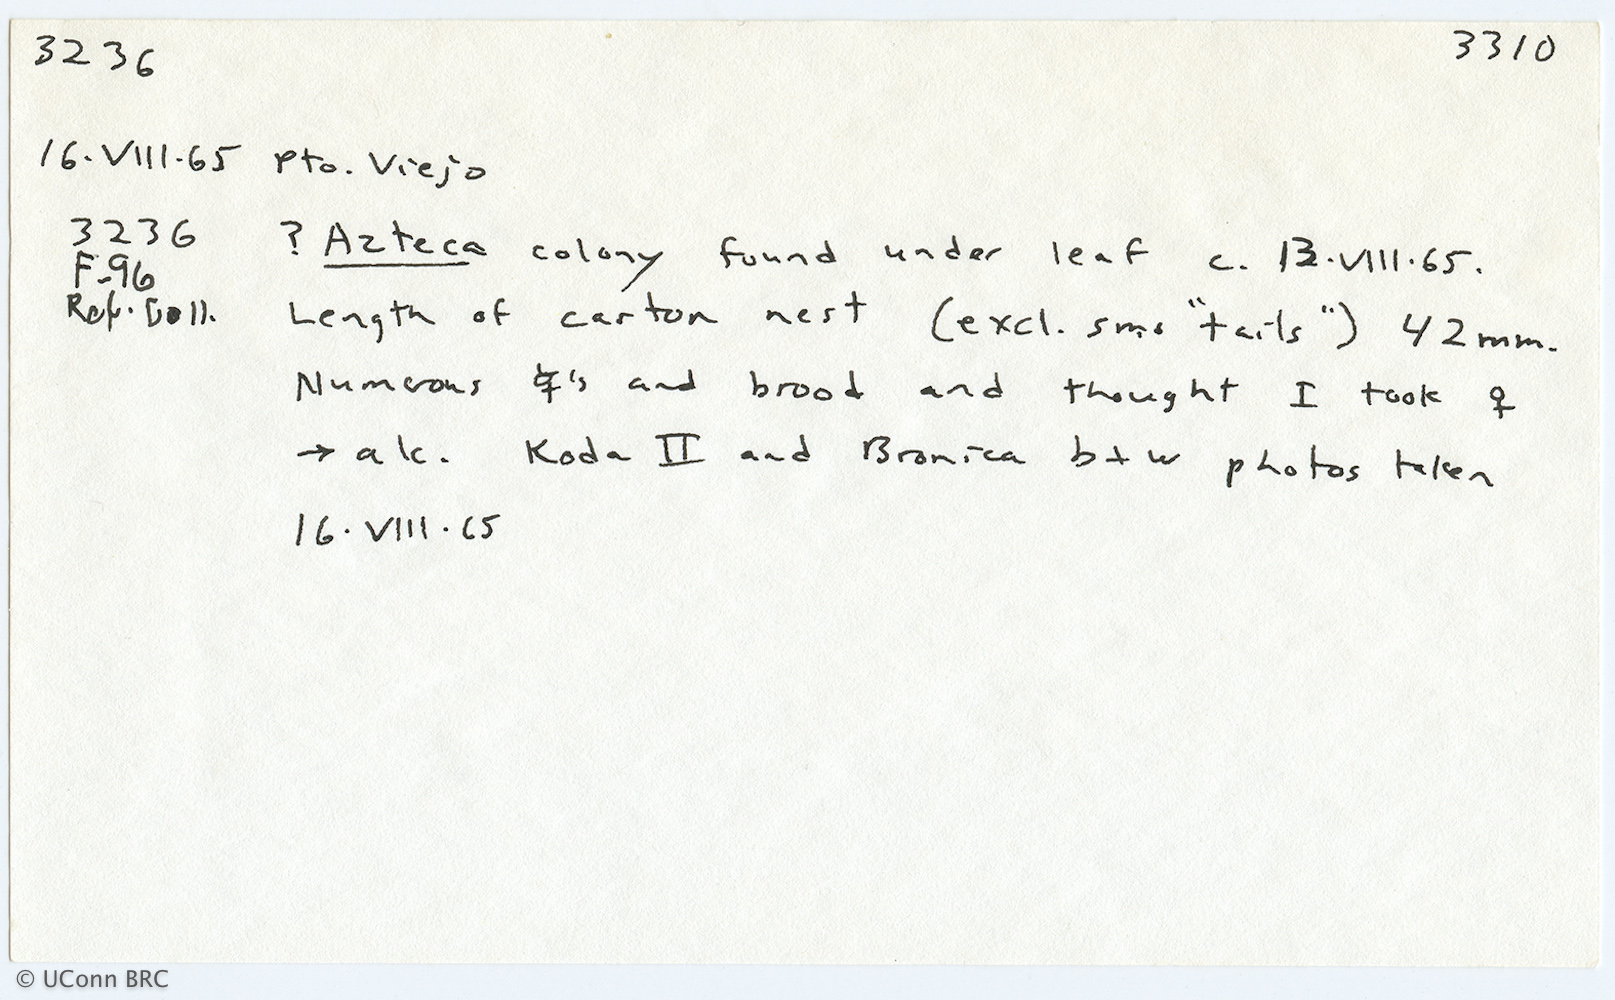 3236 3310
16.VIII.65 Pto. Viejo
3236 ? Azteca colony found under leaf c. 13.VIII.65.
F-96
Ref. Coll. Length of carton nest (excl. sm. "tails") 42mm.
Numerous ☿'s and brood and thought I took ♀
→ alc. Koda II and Bronica b+w photos taken
16.VIII.65
© UConn BRC